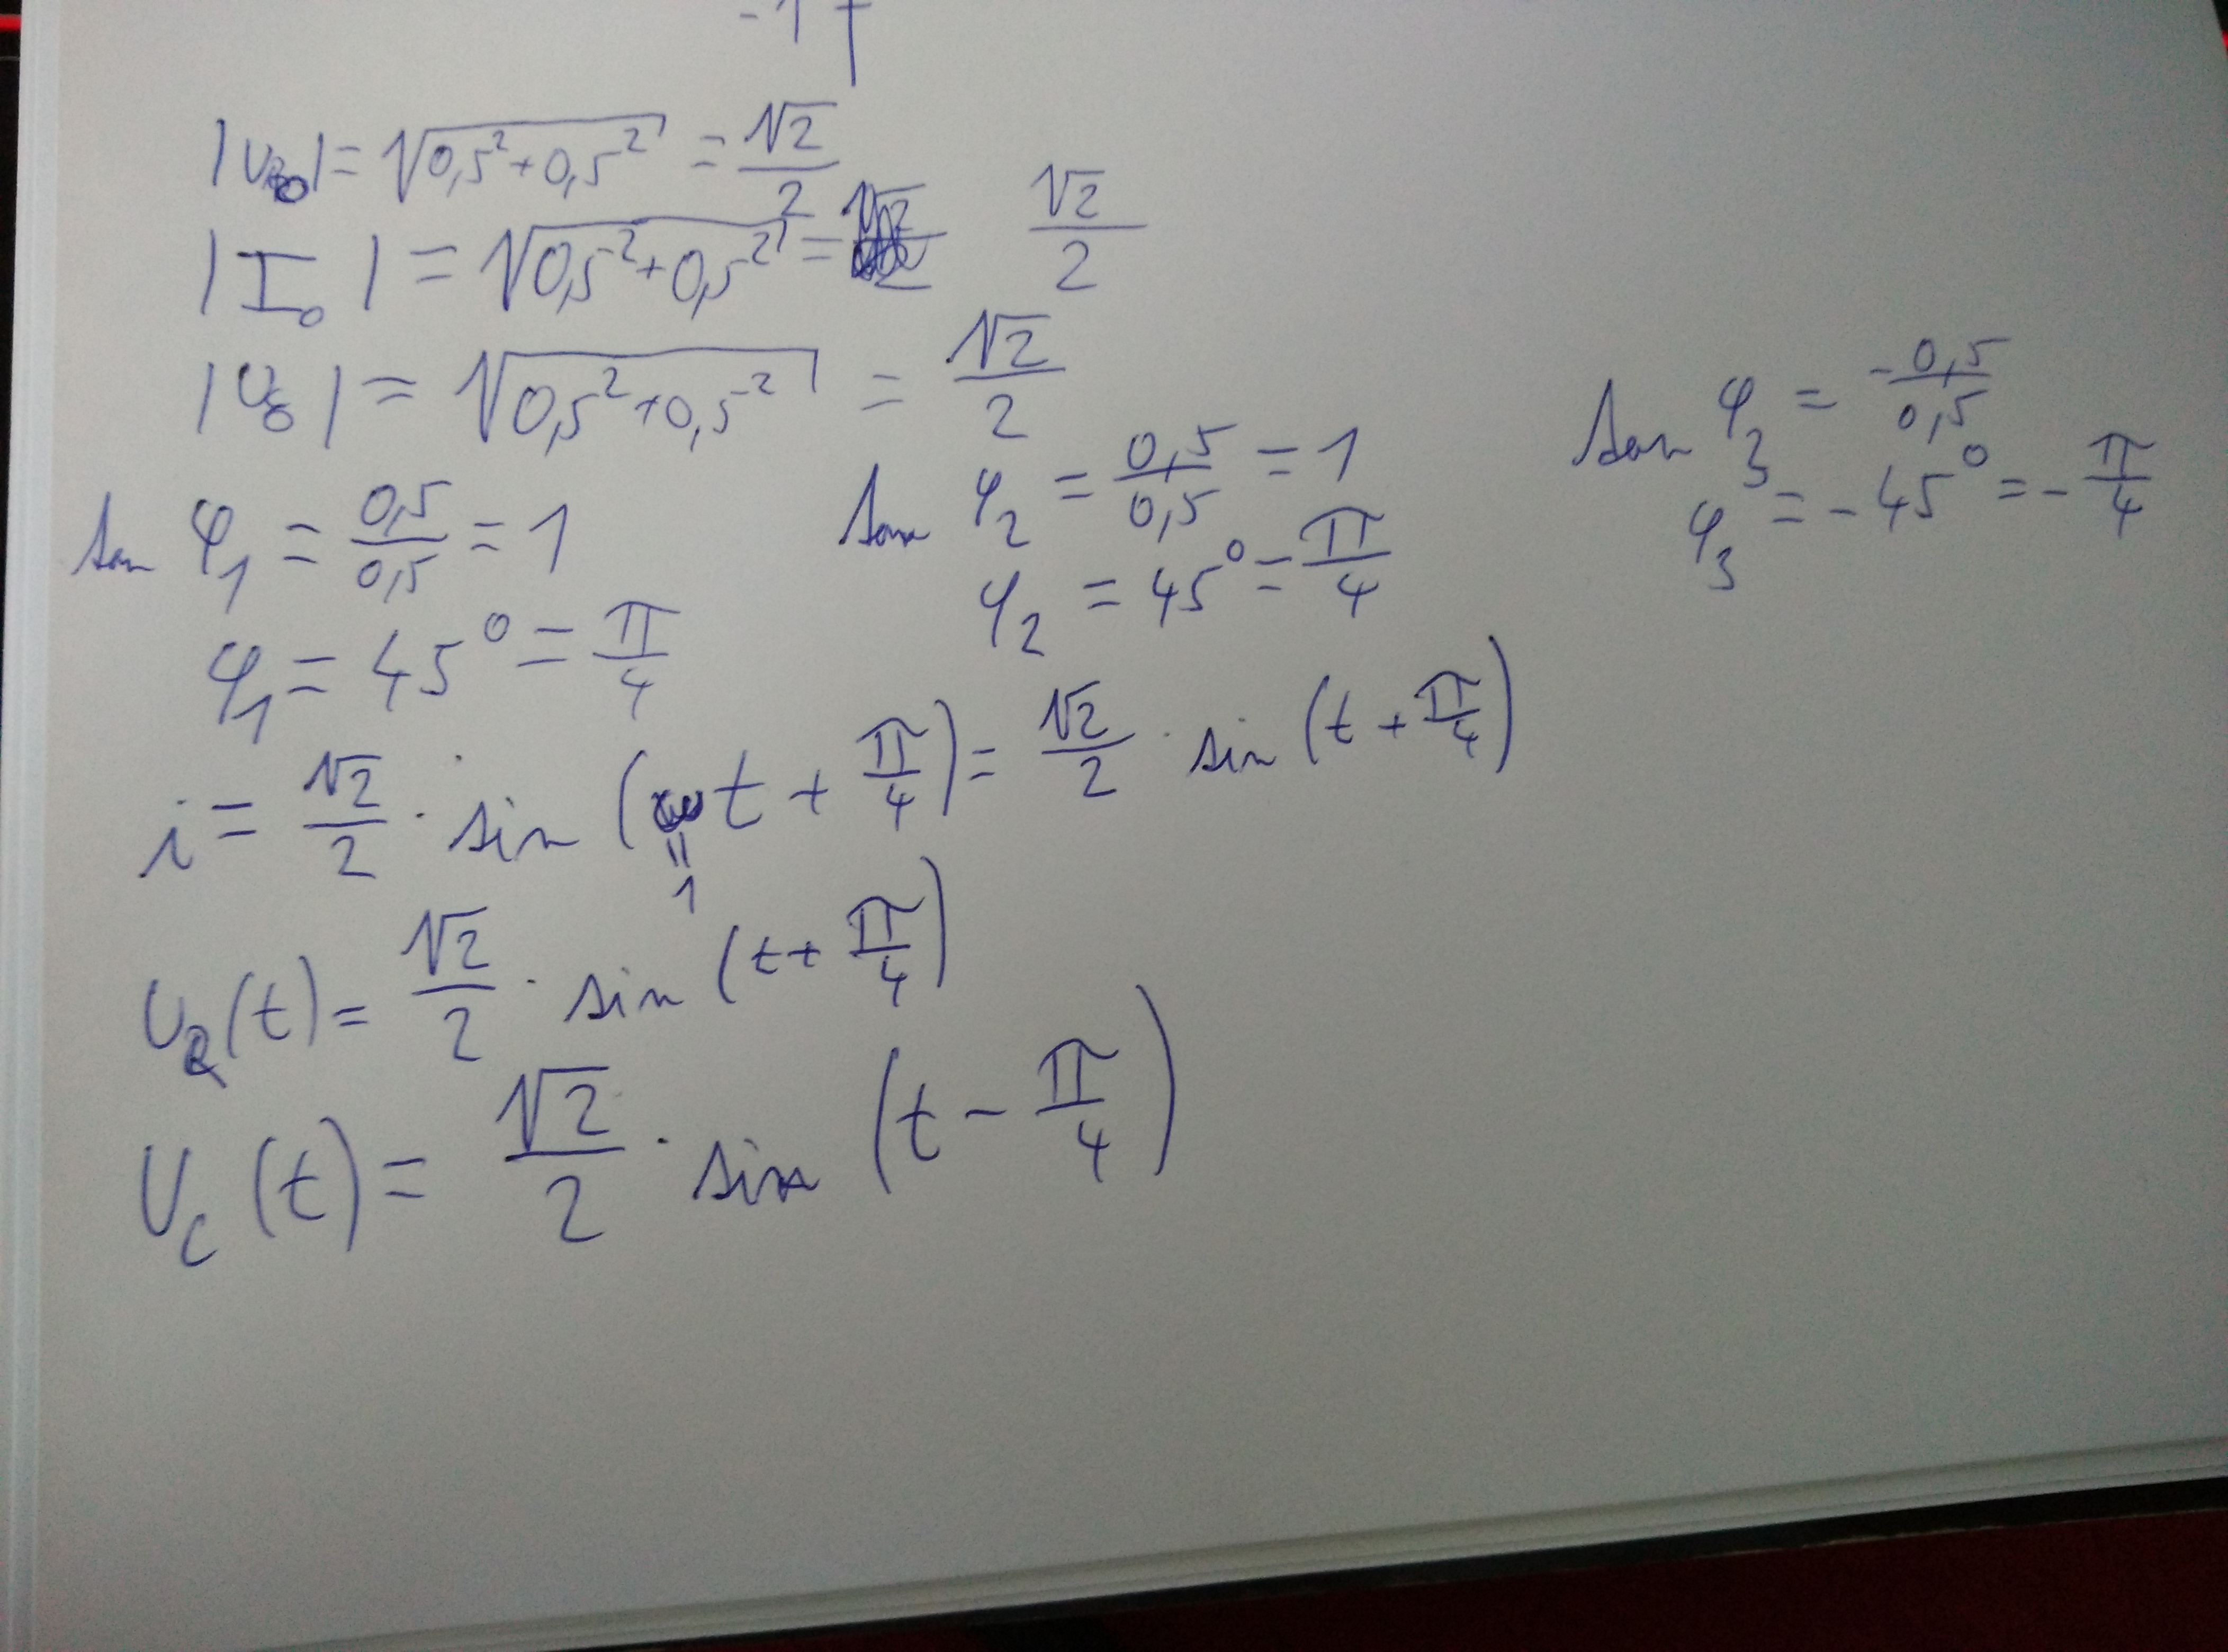 -1
|U_R0| = √(0,5² + 0,5²) = √2/2
|I_0| = √(0,5² + 0,5²) = √2/2
|U_C0| = √(0,5² + 0,5²) = √2/2
tan φ_1 = 0,5/0,5 = 1
φ_1 = 45° = π/4
tan φ_2 = 0,5/0,5 = 1
φ_2 = 45° = π/4
tan φ_3 = -0,5/0,5
φ_3 = -45° = -π/4
i = √2/2 · sin (ωt + π/4) = √2/2 · sin (t + π/4)
=1
U_R(t) = √2/2 · sin (t + π/4)
U_C(t) = √2/2 · sin (t - π/4)